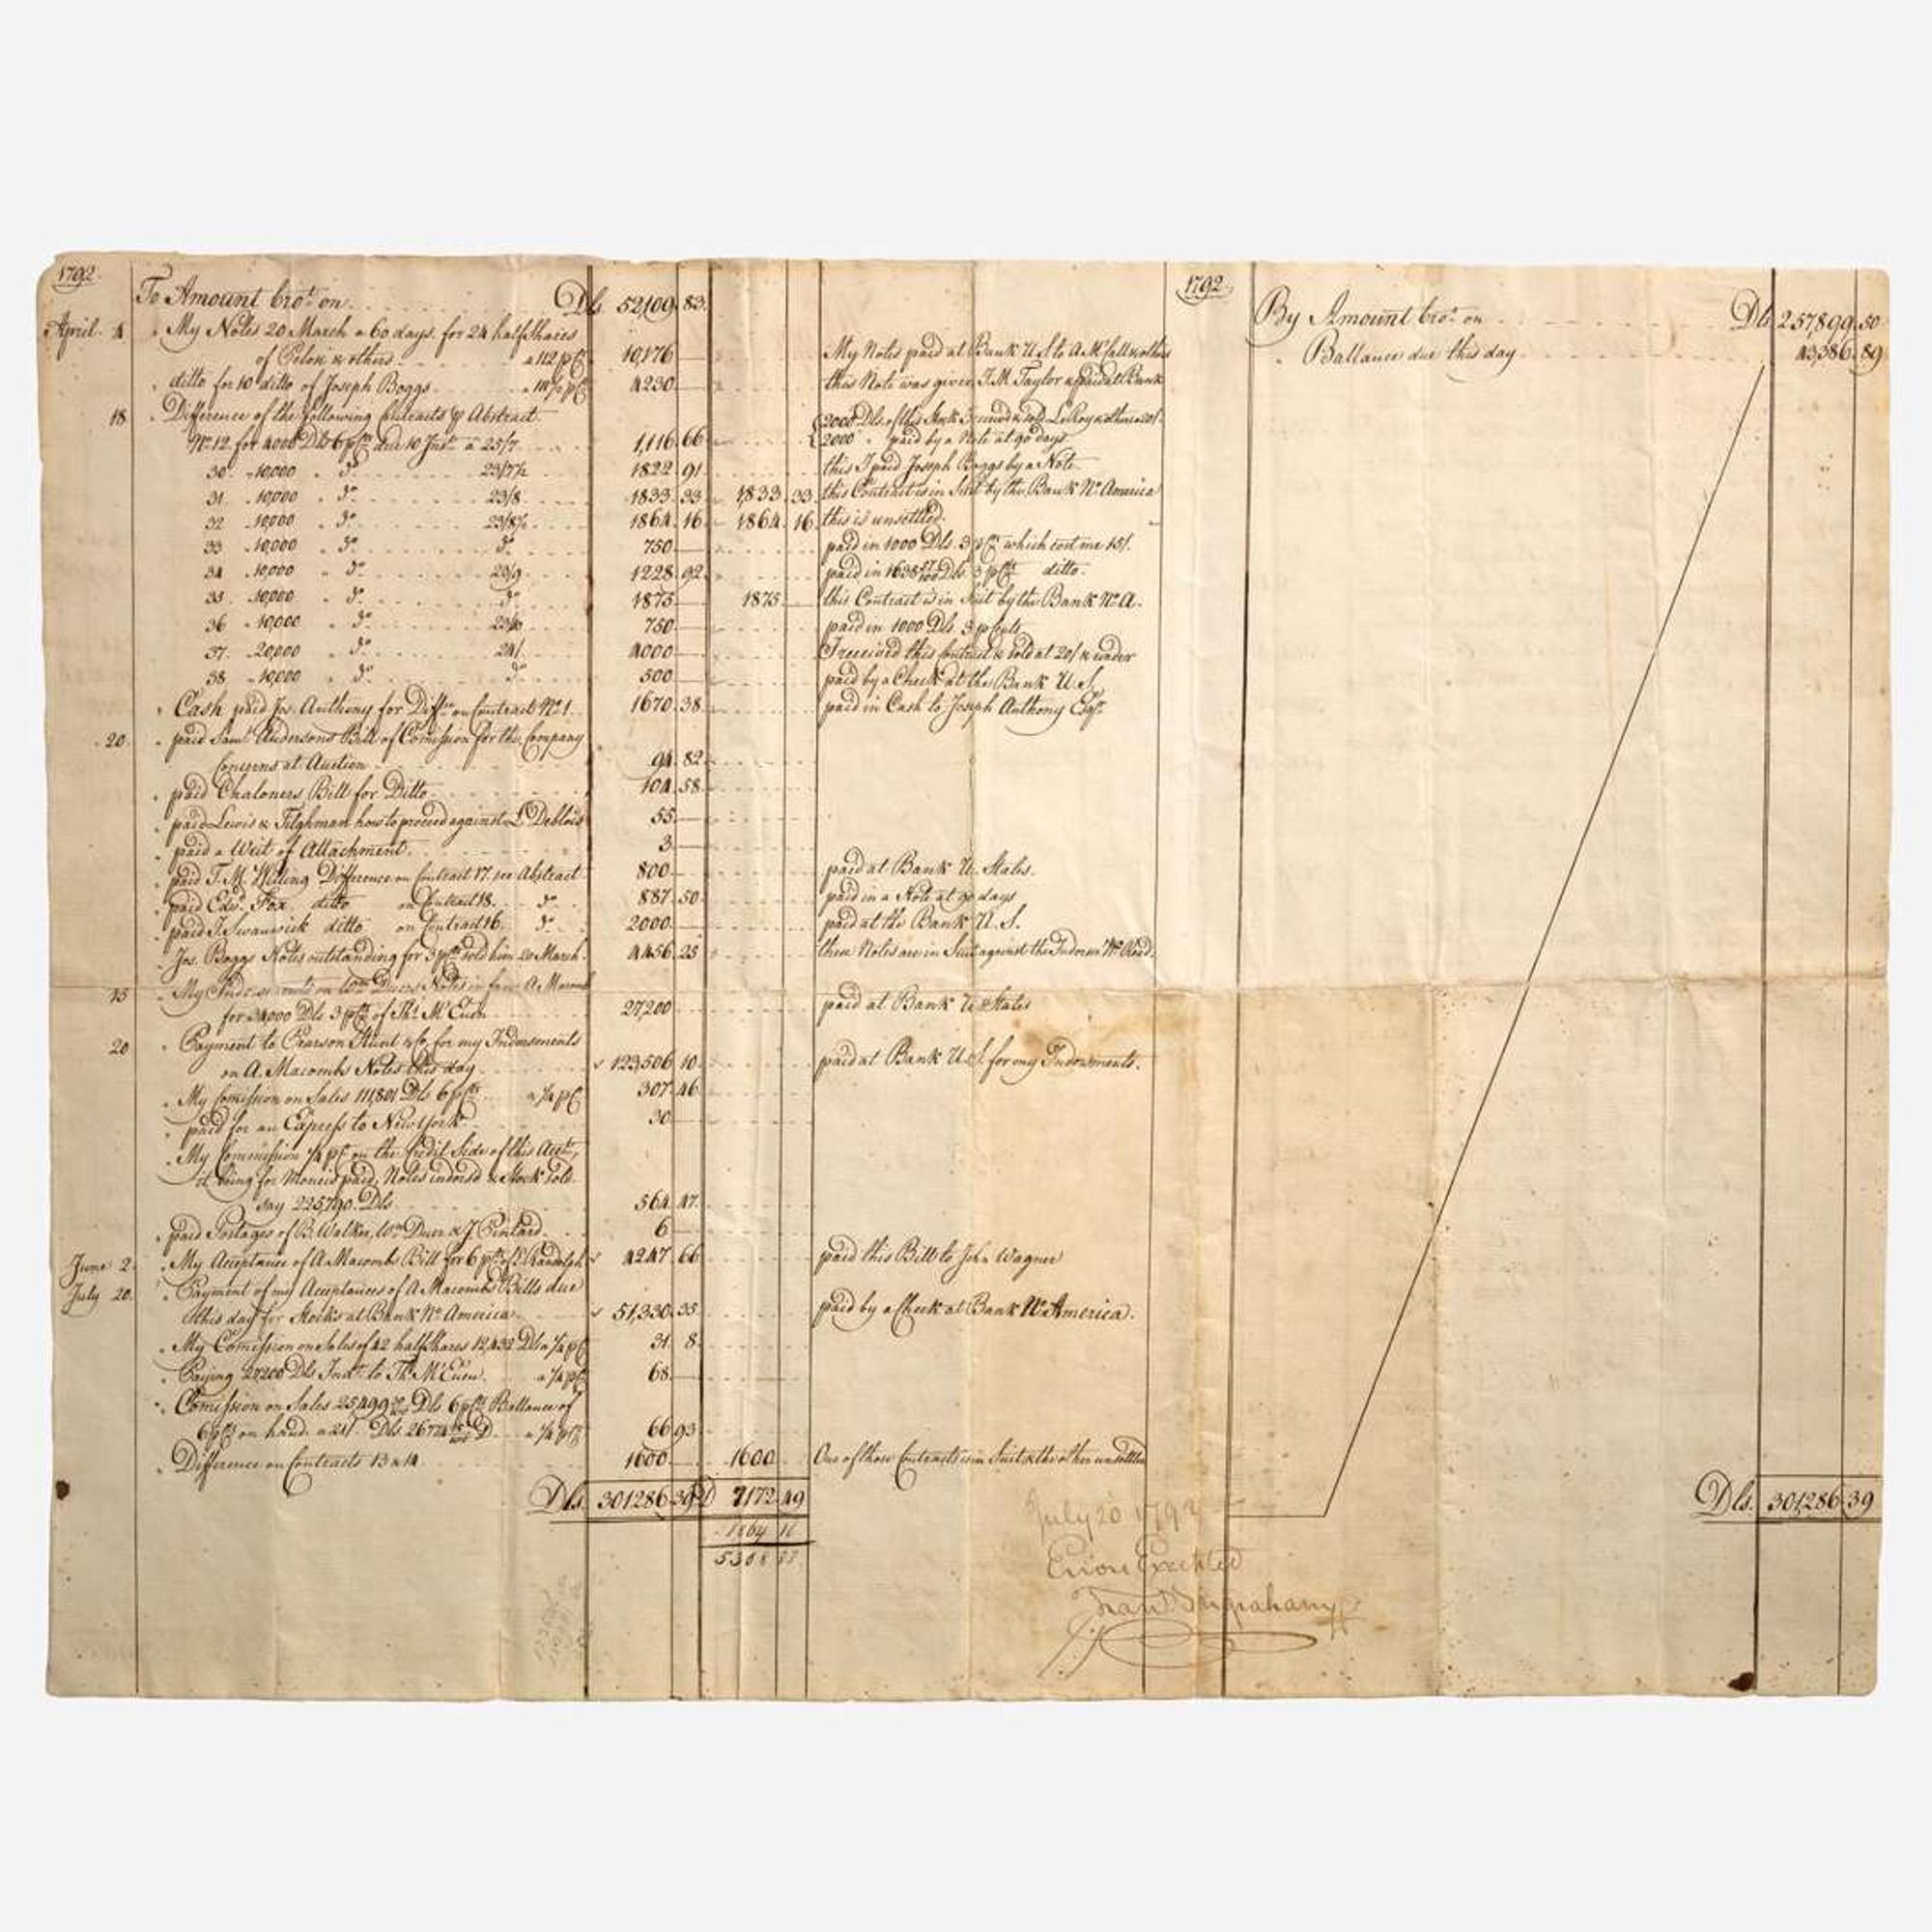 1792.
To Amount brot. on Dls. 52,109.83.
April 4 My Notes 20 March a 60 days. for 24 half Shares
of Pelox & others a 112 p Ct. 10,176 My Notes paid at Bank U.S. to A McCall & others
ditto for 10 ditto of Joseph Boggs 4230 this Note was given T.M. Taylor & paid at Bank
18 Difference of the following Contracts p Abstract
No. 12 for 4000 Dls 6 p Cts due 10 Inst. a 25/7 1,116.66 2000 paid by a Note at 90 days
30. 10,000 do. 23/7½ 1822.91 this I paid Joseph Boggs by a Note
31. 10,000 do. 23/8 1833.33 1,833.33. this Contract is in Suit by the Bank No. America
32 10,000 do. 23/8½ 1864.16 1864.16 this is unsettled
33 10,000 do. do. 750 paid in 1000 Dls 3 p Cts which cost me 15/.
34 10,000 do. 23/9 1228.92 paid in Dls 3 p Cts ditto.
35. 10,000 do. do. 1875 1875 this Contract is in Suit by the Bank No. A.
36 10,000 do. 23/10 750 paid in 1000 Dls 3 p Cents
37. 20,000 do. 24/. 4000 I received this Contract & sold at 20/ & under
38 10,000 do. do. 500 paid by a Check at the Bank U.S.
Cash paid Jos. Anthony for Diffce on Contract No. 1. 1670.38. paid in Cash to Joseph Anthony Esqr.
20. paid Saml. Andersons Bill of Comission for the Company
Concerns at Auction 94.82
paid Chaloners Bill for Ditto 104.58.
paid Lewis & Tilghman how to proceed against L. Deblois 55
paid a Writ of Attachment. 3
paid T. M. Willing Difference on Contract 17. per Abstract 800 paid at Bank U. States.
paid Edwd. Fox ditto on Contract 18. do. 887.50. paid in a Note at 90 days
paid J. Swanwick ditto on Contract 16. do. 2000 paid at the Bank U.S.
Jos. Boggs Notes outstanding for 3 p Cts sold him 20 March. 4456.25 these Notes are in Suit against the Indorser
15 My Indorsements on Wm. Duers Notes in favr. A. Macomb
for 34000 Dls 3 p Cts of Ths. McEuen 27,200 paid at Bank U. States
20 Payment to Pearson Hunt & Co. for my Indorsements
on A. Macombs Notes this day 123,506.10. paid at Bank U.S. for my Indorsments.
My Comission on Sales 111,801 Dls 6 p Cts a ¼ p Ct 307.46.
paid for an Express to New York 30
My Commission ¼ p Ct on the Credit Side of this Acct.,
it being for Monies paid, Notes indorsd & Stock sold
say 225,790. Dls 564.47.
paid Postages of B. Walker, Wm. Duer & J. Pintard 6
June 2 My Acceptance of A. Macombs Bill for 6 p Cts of E. Randolph 4247.66 paid this Bill to John Wagner
July 20. Payment of my Acceptances of A. Macombs Bills due
this day for Stocks at Bank No. America 51,330.35 paid by a Check at Bank No. America.
My Comission on Sales of 42 half Shares 12,432 Dls a ¼ p Ct 31.8.
Paying 27200 Dls Indt. to Ths. McEuen. a ¼ p Ct 68.
Comission on Sales Dls 6 p Cts Ballance of
6 p Cts on hand. a 21/. a ¼ p Ct 66.93
Difference on Contracts 13 & 14 1600 1600 One of those Contracts is in Suit & the other unsettled
Dls. 301286.39 D 7172.49
1864 16
5308 33
July 20 1792
Errors Excepted
1792.
By Amount brot. on Dls 257,899.50
Ballance due this day 43,386.89
Dls. 301,286.39